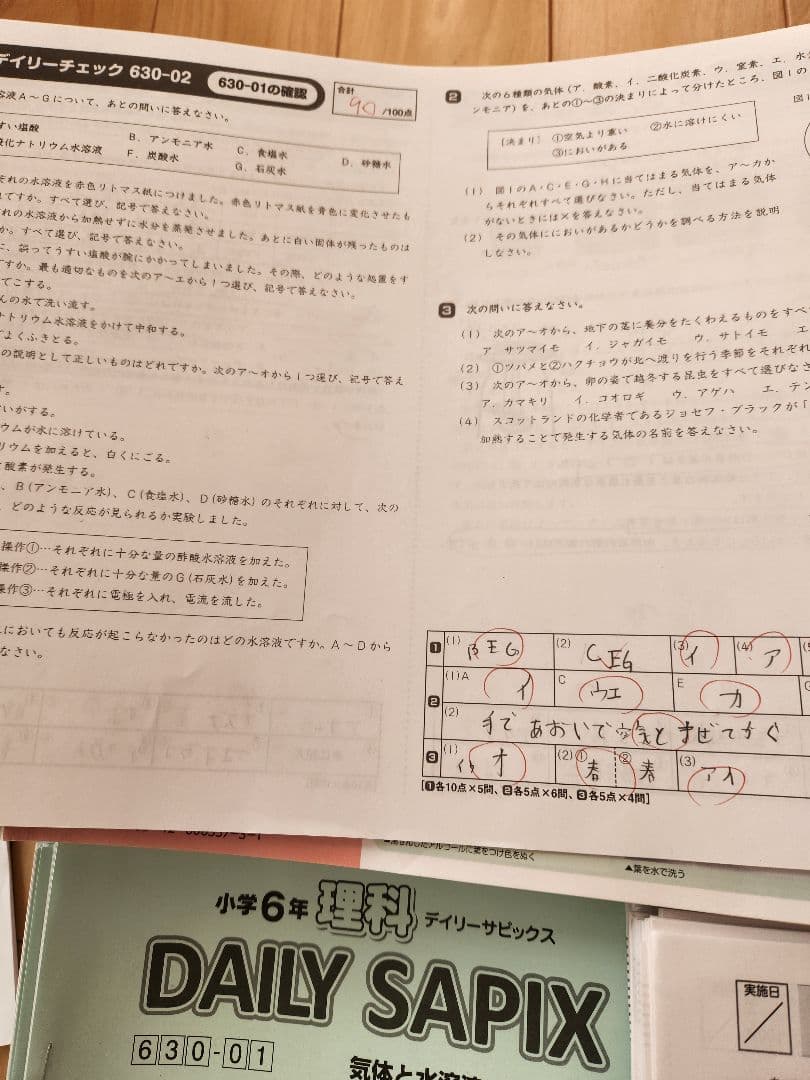 デイリーチェック 630-02
630-01の確認
合計
90 /100点
溶液A～Gについて、あとの問いに答えなさい。
すい塩酸
B．アンモニア水
C．食塩水
D．砂糖水
酸化ナトリウム水溶液
F．炭酸水
G．石灰水
ぞれの水溶液を赤色リトマス紙につけました。赤色リトマス紙を青色に変化させたも
れですか。すべて選び、記号で答えなさい。
れの水溶液から加熱せずに水分を蒸発させました。あとに白い固体が残ったものは
か。すべて選び、記号で答えなさい。
に、誤ってうすい塩酸が腕にかかってしまいました。その際、どのような処置をす
ですか。最も適切なものを次のア～エから1つ選び、記号で答えなさい。
てこする。
んの水で洗い流す。
ナトリウム水溶液をかけて中和する。
でよくふきとる。
の説明として正しいものはどれですか。次のア～オから1つ選び、記号で答え
す。
いがする。
ウムが水に溶けている。
リウムを加えると、白くにごる。
と酸素が発生する。
、B(アンモニア水)、C(食塩水)、D(砂糖水)のそれぞれに対して、次の
、どのような反応が見られるか実験しました。
操作①…それぞれに十分な量の酢酸水溶液を加えた。
操作②…それぞれに十分な量のG(石灰水)を加えた。
操作③…それぞれに電極を入れ、電流を流した。
においても反応が起こらなかったのはどの水溶液ですか。A～Dから
なさい。
2 次の6種類の気体(ア．酸素、イ．二酸化炭素、ウ．窒素、エ．水
ンモニア)を、あとの①～③の決まりによって分けたところ、図1の
［決まり］ ①空気より重い ②水に溶けにくい
③においがある
図1
(1) 図1のA・C・E・G・Hに当てはまる気体を、ア～カか
らそれぞれすべて選びなさい。ただし、当てはまる気体
がないときには×を答えなさい。
(2) その気体ににおいがあるかどうかを調べる方法を説明
しなさい。
3 次の問いに答えなさい。
(1) 次のア～オから、地下の茎に養分をたくわえるものをすべ
ア．サツマイモ イ．ジャガイモ ウ．サトイモ エ
(2) ①ツバメと②ハクチョウが北へ渡りを行う季節をそれぞれ
(3) 次のア～オから、卵の姿で越冬する昆虫をすべて選びなさ
ア．カマキリ イ．コオロギ ウ．アゲハ エ．テン
(4) スコットランドの化学者であるジョセフ・ブラックが「
加熱することで発生する気体の名前を答えなさい。
1 (1) BEG (2) CEG (3) イ (4) ア
2 (1)A イ C ウエ E カ
(2) 手であおいで空気とまぜてかぐ
3 (1) イウオ (2)① 春 ② 春 (3) アイ
[1各10点×5問、2各5点×6問、3各5点×4問]
▲葉を水で洗う
小学6年 理科 デイリーサピックス
DAILY SAPIX
630-01
気体と水溶
実施日